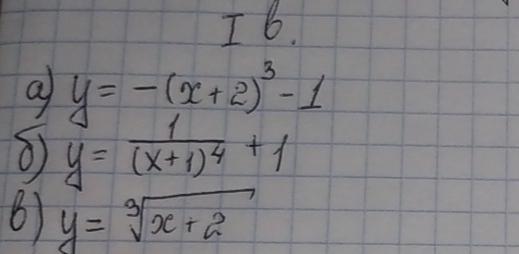 I в.
а) y = -(x+2)³ - 1
б) y = 1/(x+1)⁴ + 1
в) y = ∛(x+2)